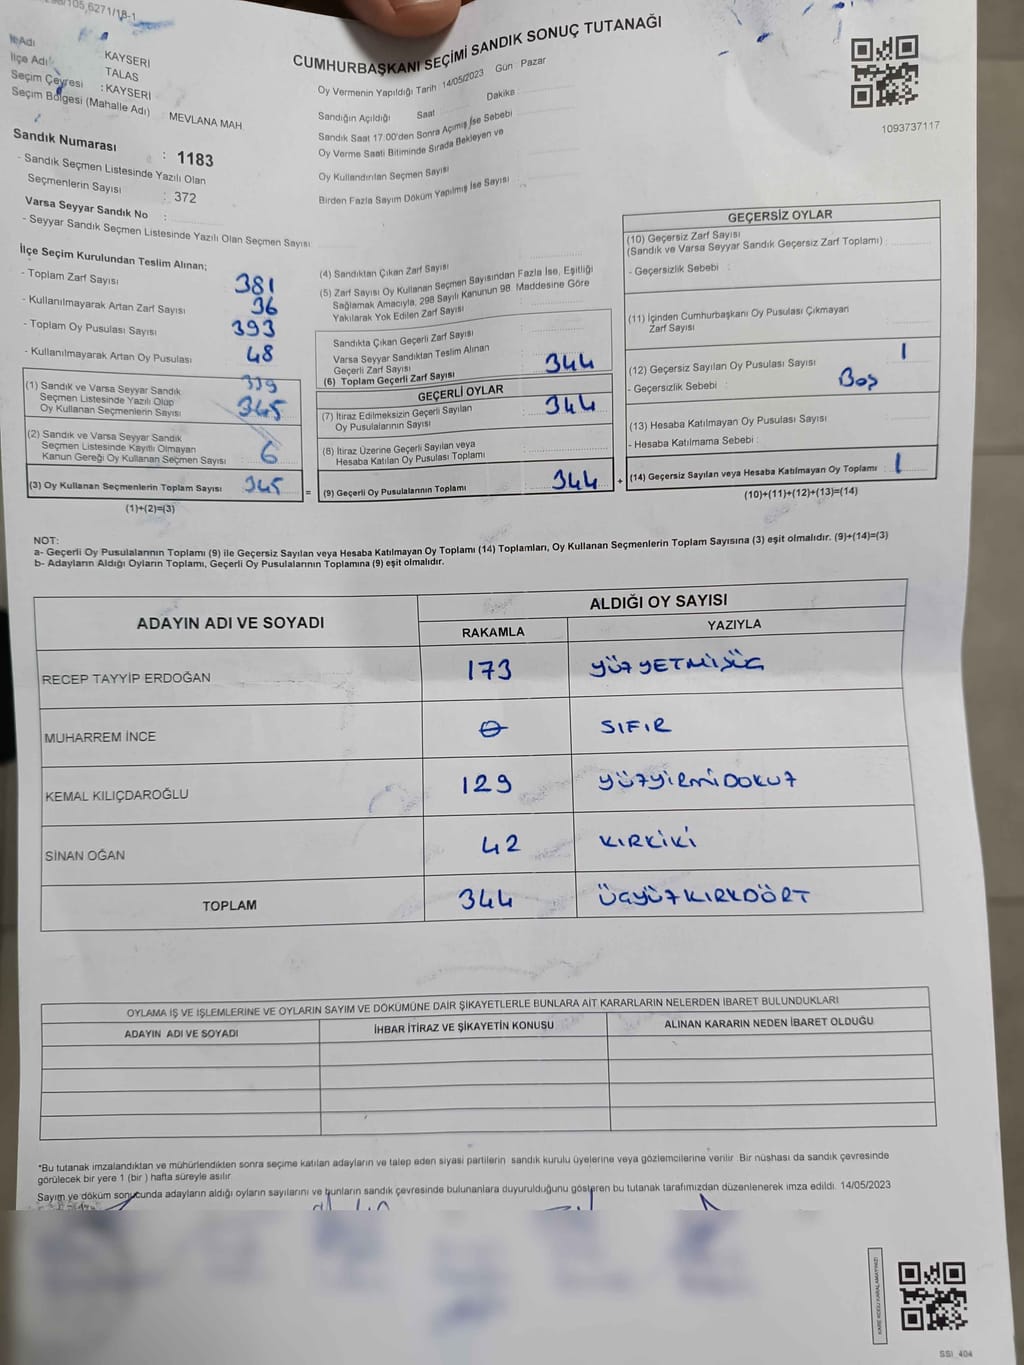 CUMHURBAŞKANI SEÇİMİ SANDIK SONUÇ TUTANAĞI
İl Adı
KAYSERİ
İlçe Adı
TALAS
Seçim Çevresi : KAYSERİ
Seçim Bölgesi (Mahalle Adı) : MEVLANA MAH.
Sandık Numarası : 1183
- Sandık Seçmen Listesinde Yazılı Olan
Seçmenlerin Sayısı : 372
Varsa Seyyar Sandık No :
- Seyyar Sandık Seçmen Listesinde Yazılı Olan Seçmen Sayısı
Oy Vermenin Yapıldığı Tarih 14/05/2023 Gün Pazar
Sandığın Açıldığı Saat Dakika
Sandık Saat 17:00'den Sonra Açımış İse Sebebi
Oy Verme Saati Bitiminde Sırada Bekleyen ve
Oy Kullandırılan Seçmen Sayısı
Birden Fazla Sayım Döküm Yapılmış İse Sayısı
1093737117
İlçe Seçim Kurulundan Teslim Alınan;
- Toplam Zarf Sayısı 381
- Kullanılmayarak Artan Zarf Sayısı 36
- Toplam Oy Pusulası Sayısı 393
- Kullanılmayarak Artan Oy Pusulası 48
(1) Sandık ve Varsa Seyyar Sandık 339
Seçmen Listesinde Yazılı Olup
Oy Kullanan Seçmenlerin Sayısı 345
(2) Sandık ve Varsa Seyyar Sandık
Seçmen Listesinde Kayıtlı Olmayan
Kanun Gereği Oy Kullanan Seçmen Sayısı 6
(3) Oy Kullanan Seçmenlerin Toplam Sayısı 345
(1)+(2)=(3)
(4) Sandıktan Çıkan Zarf Sayısı
(5) Zarf Sayısı Oy Kullanan Seçmen Sayısından Fazla İse, Eşitliği
Sağlamak Amacıyla, 298 Sayılı Kanunun 98. Maddesine Göre
Yakılarak Yok Edilen Zarf Sayısı
Sandıkta Çıkan Geçerli Zarf Sayısı
Varsa Seyyar Sandıktan Teslim Alınan
Geçerli Zarf Sayısı
(6) Toplam Geçerli Zarf Sayısı 344
GEÇERLİ OYLAR
(7) İtiraz Edilmeksizin Geçerli Sayılan
Oy Pusulalarının Sayısı 344
(8) İtiraz Üzerine Geçerli Sayılan veya
Hesaba Katılan Oy Pusulası Toplamı
= (9) Geçerli Oy Pusulalarının Toplamı 344
GEÇERSİZ OYLAR
(10) Geçersiz Zarf Sayısı
(Sandık ve Varsa Seyyar Sandık Geçersiz Zarf Toplamı)
- Geçersizlik Sebebi :
(11) İçinden Cumhurbaşkanı Oy Pusulası Çıkmayan
Zarf Sayısı
(12) Geçersiz Sayılan Oy Pusulası Sayısı 1
- Geçersizlik Sebebi : Boş
(13) Hesaba Katılmayan Oy Pusulası Sayısı
- Hesaba Katılmama Sebebi :
+ (14) Geçersiz Sayılan veya Hesaba Katılmayan Oy Toplamı 1
(10)+(11)+(12)+(13)=(14)
NOT:
a- Geçerli Oy Pusulalarının Toplamı (9) ile Geçersiz Sayılan veya Hesaba Katılmayan Oy Toplamı (14) Toplamları, Oy Kullanan Seçmenlerin Toplam Sayısına (3) eşit olmalıdır. (9)+(14)=(3)
b- Adayların Aldığı Oyların Toplamı, Geçerli Oy Pusulalarının Toplamına (9) eşit olmalıdır.
ADAYIN ADI VE SOYADI
ALDIĞI OY SAYISI
RAKAMLA YAZIYLA
RECEP TAYYİP ERDOĞAN 173 YÜZYETMİŞÜÇ
MUHARREM İNCE 0 SIFIR
KEMAL KILIÇDAROĞLU 129 YÜZYİRMİDOKUZ
SİNAN OĞAN 42 KIRKİKİ
TOPLAM 344 ÜÇYÜZKIRKDÖRT
OYLAMA İŞ VE İŞLEMLERİNE VE OYLARIN SAYIM VE DÖKÜMÜNE DAİR ŞİKAYETLERLE BUNLARA AİT KARARLARIN NELERDEN İBARET BULUNDUKLARI
ADAYIN ADI VE SOYADI İHBAR İTİRAZ VE ŞİKAYETİN KONUSU ALINAN KARARIN NEDEN İBARET OLDUĞU
*Bu tutanak imzalandıktan ve mühürlendikten sonra seçime katılan adayların ve talep eden siyasi partilerin sandık kurulu üyelerine veya gözlemcilerine verilir. Bir nüshası da sandık çevresinde
görülecek bir yere 1 (bir) hafta süreyle asılır.
Sayım ve döküm sonucunda adayların aldığı oyların sayılarını ve bunların sandık çevresinde bulunanlara duyurulduğunu gösteren bu tutanak tarafımızdan düzenlenerek imza edildi. 14/05/2023
KARE KODU KARALAMAYINIZ!
SSI 404